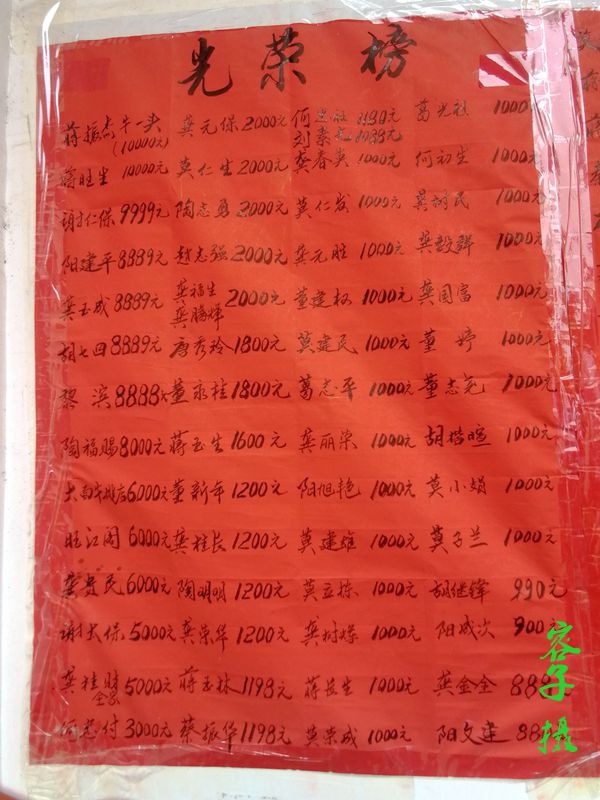 光荣榜
蒋振杰牛一头 龚元保2000元 1180元 葛光社 1000
(10000元) 刘素尧1089元
蒋旺生 10000元 莫仁生2000元 蔡春英 1000元 何初生 1000元
谢仁保 9999元 陶志勇 2000元 莫仁发 1000元 1000元
阳建平8889元 赵志强2000元 龚元胜 1000元 龚毅群 1000元
龚玉成 8889元 龚福生 2000元 董建权 1000元 龚国富 1000元
胡七四 8889元 唐秀玲1800元 莫建民 1000元 董婷 1000元
黎滨8888元 董永桂1800元 葛志平 1000元 董志尧 1000元
陶福赐8000元 蒋玉生 1600元 龚丽荣 1000元 胡楷暄 1000元
6000元 董新年 1200元 阳旭艳 1000元 莫小娟 1000元
旺江阁 6000元 龚桂长 1200元 莫建雄 1000元 莫子兰 1000元
龚贵民6000元 陶明明 1200元 莫立栋 1000元 胡继锋 990元
谢长保 5000元 龚荣华 1200元 1000元 阳成次 900元
龚桂财 5000元 蒋玉林 1198元 蒋益生 1000元 龚金全 88
全家
何老付 3000元 蔡振华1198元 莫荣成 1000元 阳文建 88
容子摄